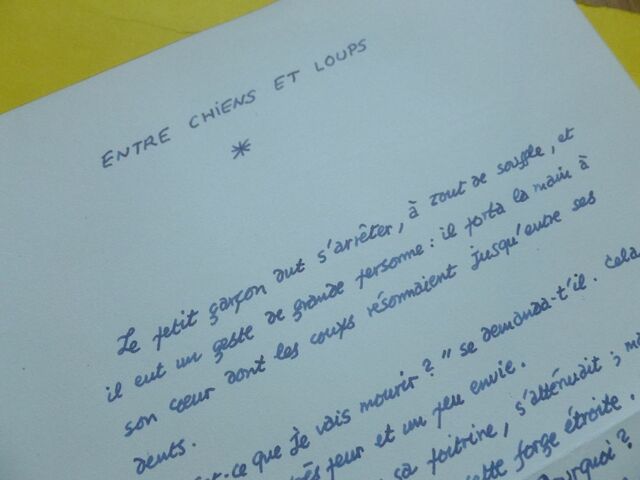 ENTRE CHIENS ET LOUPS
*
Le petit garçon dut s'arrêter, à bout de souffle, et
il eut un geste de grande personne : il porta la main à
son cœur dont les coups résonnaient jusqu'entre ses
dents.
-ce que je vais mourir ? " se demanda-t'il. Cela
peur et un peu envie.
sa poitrine, s'atténuait ;
cette forge étroite.
Pourquoi ?